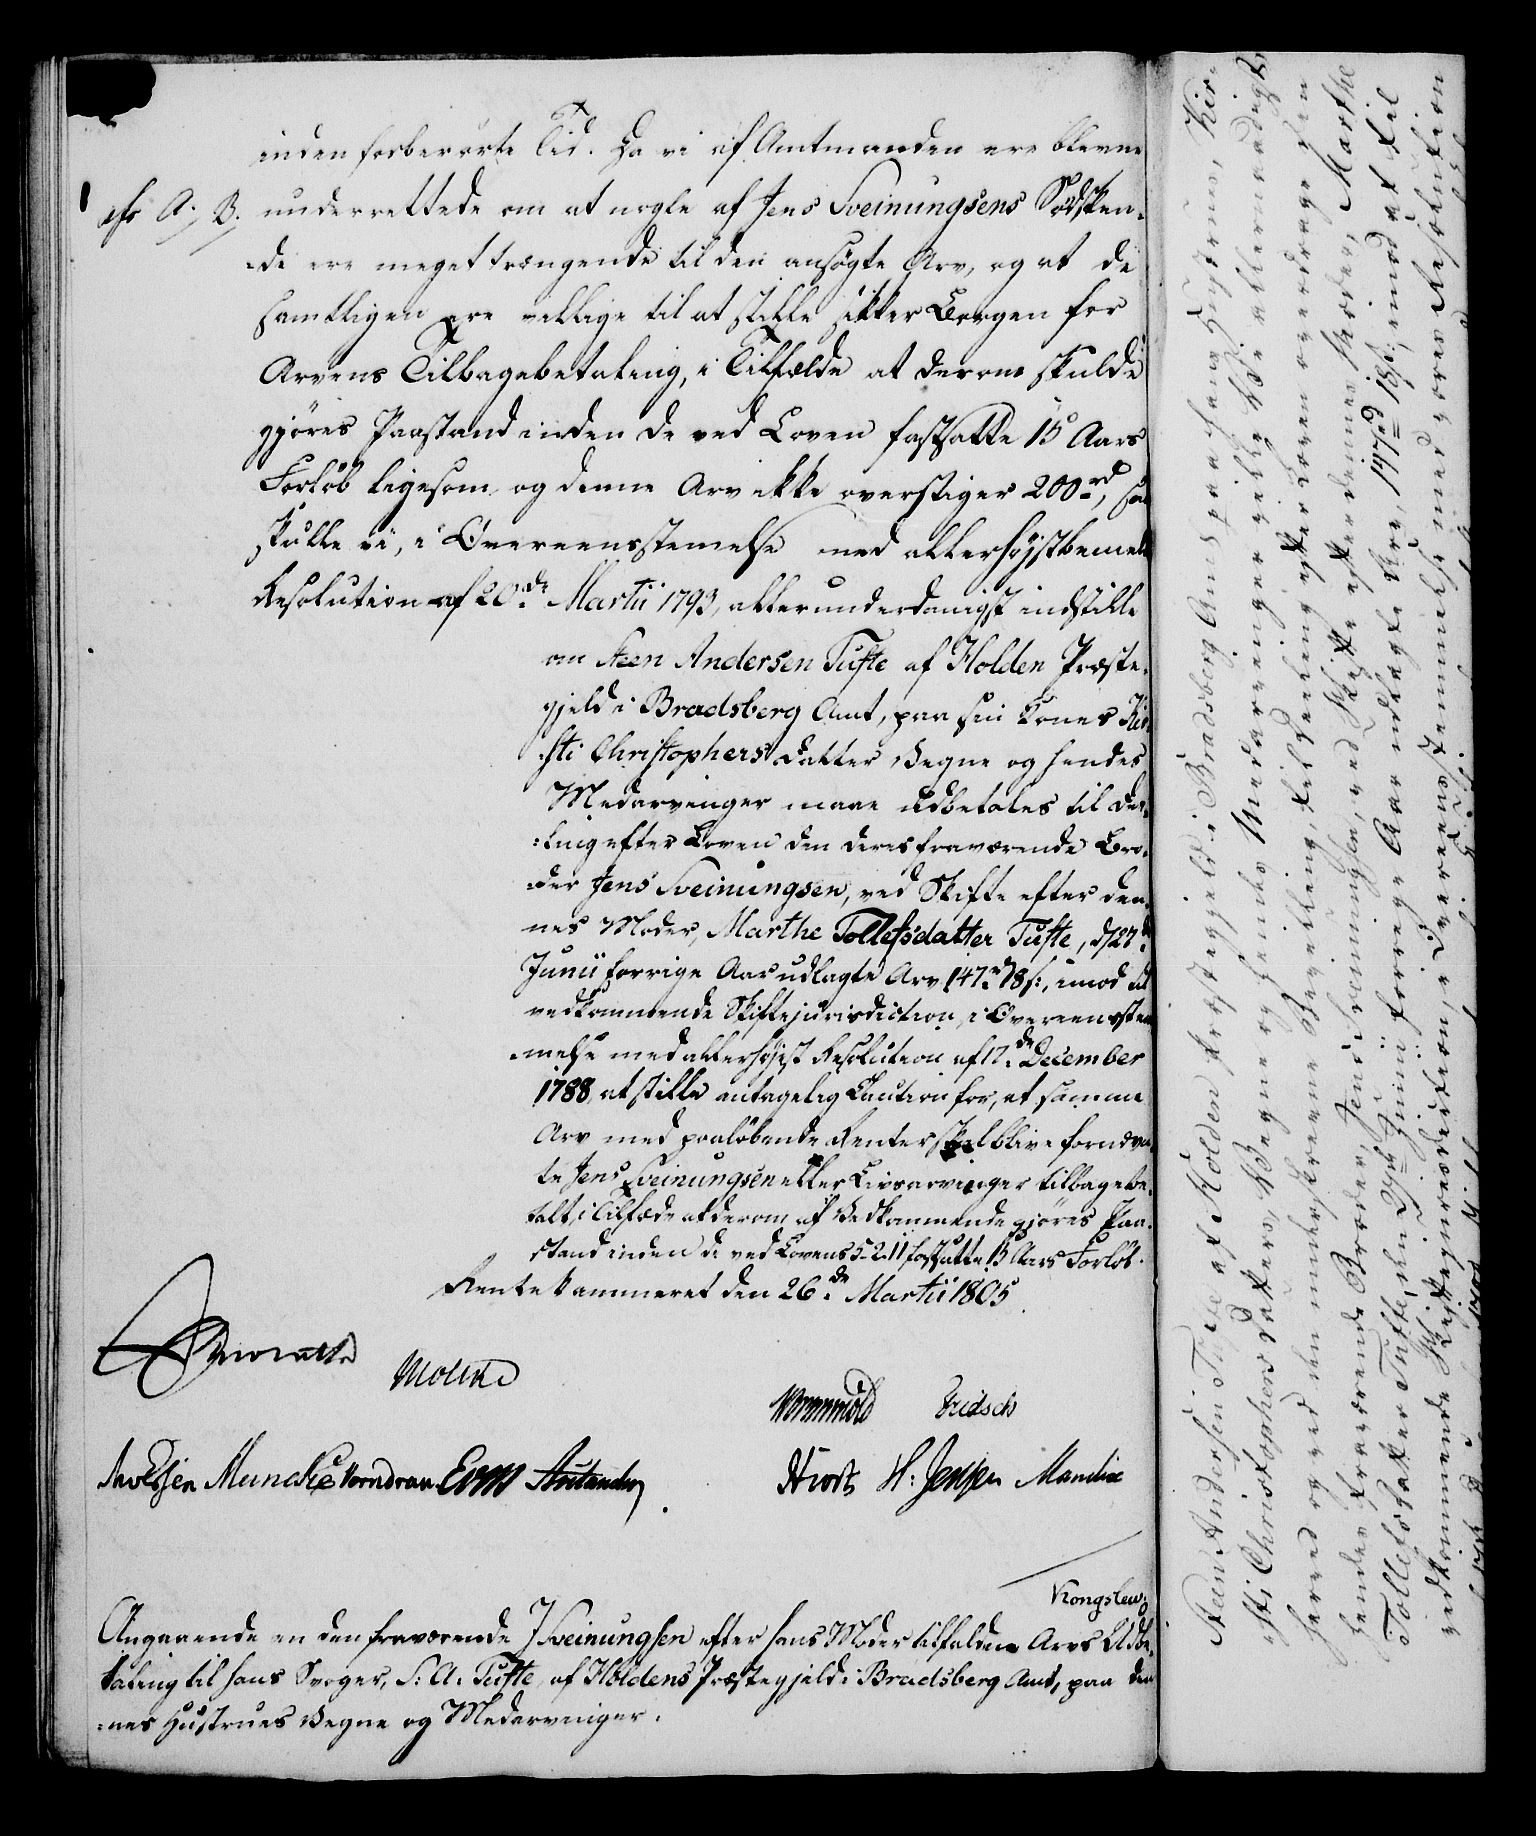 inden forberørte Tid. Da vi af Amtmanden ere blevne
cfr A. B. underrettede om at nogle af Jens Sveinungsens Sødsken-
de ere meget trængende til den ansøgte Arv, og at de
samtligen ere villige til at stille sikker Borgen for
Arvens Tilbagebetaling, i Tilfælde at derom skulde
gjøres Paastand inden de ved Loven fastsatte 15 Aars
Forløb ligesom og denne Arv ikke overstiger 200 rd, saa
skulle vi, i Overeensstemelse med allerhøjstbemelte
Resolution af 20de Martii 1793, allerunderdanigst indstille
om Steen Andersen Tufte af Holden Præste-
gjeld i Bradsberg Amt, paa sin Kones Kir-
sti Christophers Datters Vegne og hendes
Medarvinger maae udbetales til Dee-
ling efter Loven den deres fraværende Bro-
der Jens Sveinungsen, ved Skifte efter den-
nes Moder, Marthe Tollefsdatter Tufte, d/27de
Junii forrige Aar udlagte Arv 147 rd 18 s:, imod til
vedkommende Skiftejurisdiction, i Overeensstem-
melse med allerhøjst Resolution af 17de December
1788, at stille antagelig Caution for, at samme
Arv med paaløbende Renter skal blive fornævn-
te Jens Sveinungsen eller Livsarvinger tilbagebe-
talt, i Tilfælde at derom af Vedkommende gjøres Paa-
stand inden de ved Lovens 5-2-11 fastsatte 15 Aars Forløb.
Rentekammeret den 26de Martii 1805
Moltke
Wormskiold
Knudsen Muncke Vorndran
H. Jensen Manthie
Kongslew
Angaaende en den fraværende J Sveinungsen efter hans Moder tilfalden Arvs Udbe-
taling til hans Svoger, S: A: Tufte, af Holdens Præstegjeld i Bradsberg Amt, paa den-
nes Hustrues Vegne og Medarvinger.
Steen Andersen Tufte af Holden Præstegjeld i Bradsberg Amt paa hans Hustrues, Kir-
sti Christophers Datters, Vegne og hendes Medarvinger ville Vi allernaadigst
herved og ved den underskrevne Bevilling, til Deeling efter Loven overdrage den
hendes fraværende Broder, Jens Sveinungsen, ved Skifte efter dennes Moder, Marthe
Tollefsdatter Tufte, den 27de Junii forrige Aar udlagte Arv, 147 rd 18 s:, imod at til
vedkommende Skiftejurisdiction, i Overeensstemmelse med vores Resolution